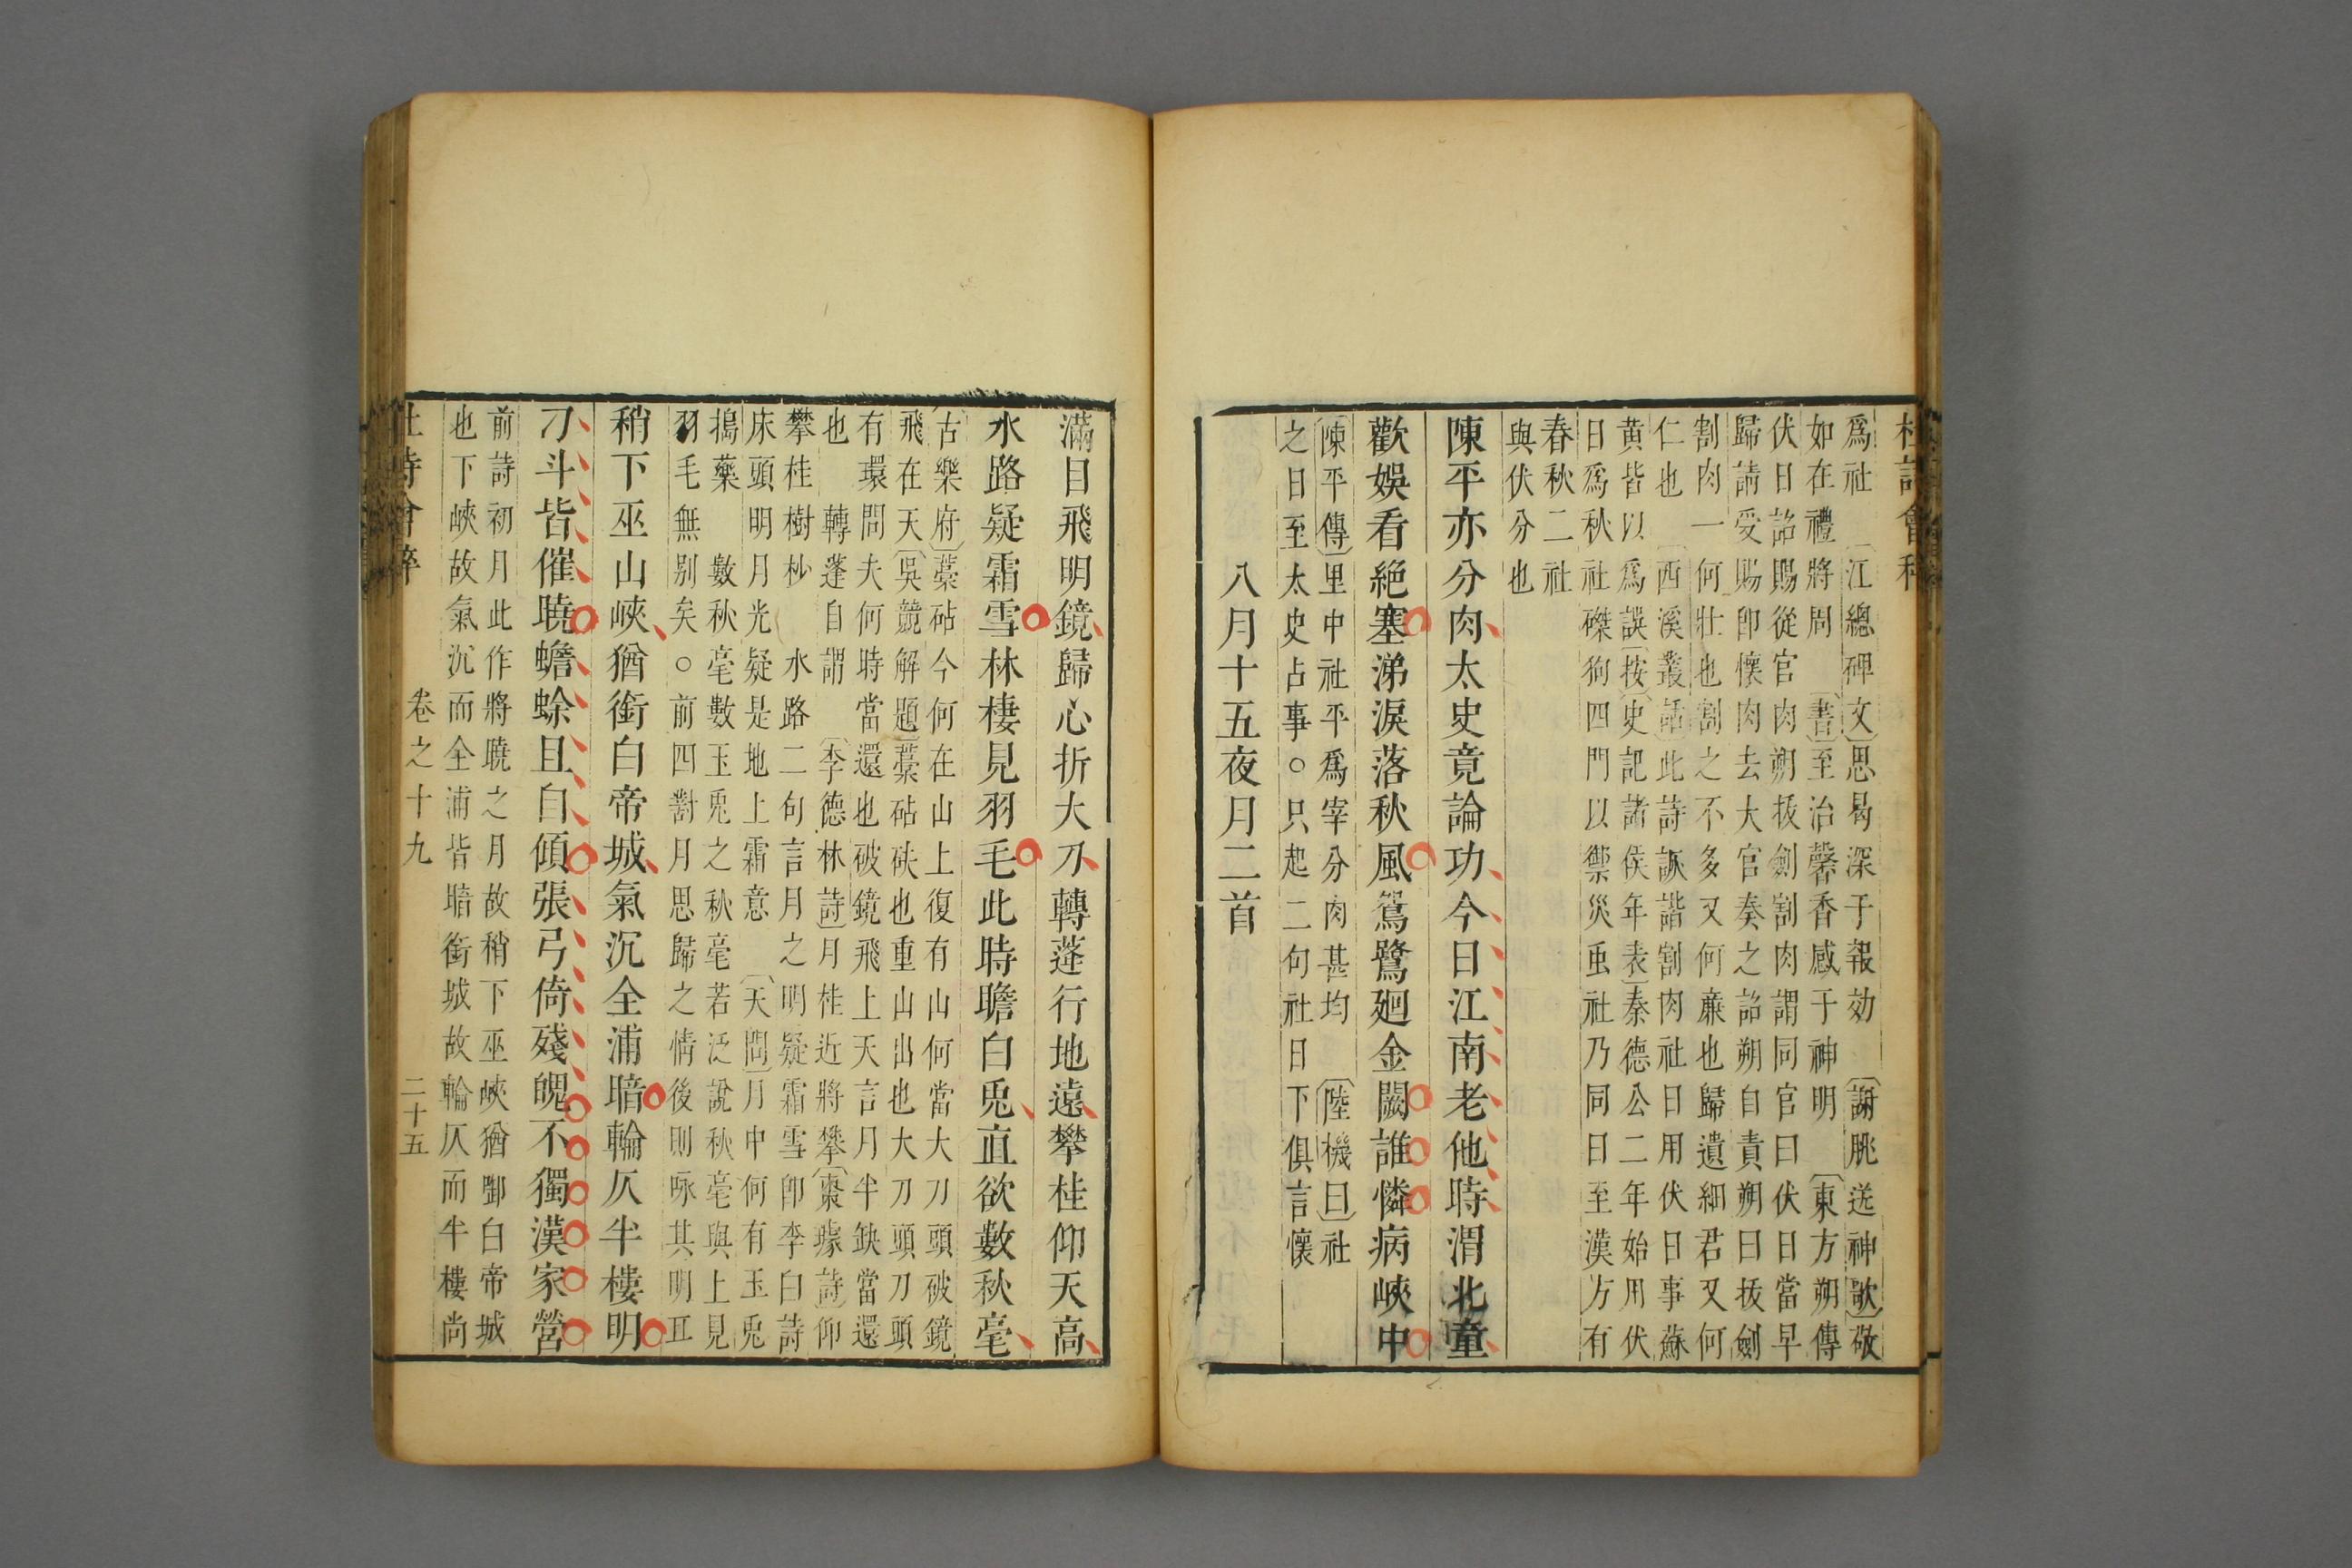 杜詩會稡
爲社 〔江總碑文〕思曷深于報効 〔謝朓送神歌〕敬
如在禮將周 〔書〕至治馨香感于神明 〔東方朔傳
伏日詔賜從官肉朔拔劍割肉謂同官曰伏日當早
歸請受賜卽懷肉去大官奏之詔朔自責朔曰拔劍
割肉一何壯也割之不多又何廉也歸遺細君又何
仁也 〔西溪叢話〕此詩詼諧割肉社日用伏日事蘇
黃皆以爲誤〔按〕〔史記諸侯年表〕秦德公二年始用伏
日爲秋社磔狗四門以禦災䖝社乃同日至漢方有
春秋二社
與伏分也
陳平亦分肉太史竟論功今日江南老他時渭北童
歡娛看絕塞涕淚落秋風鴛鷺廻金闕誰憐病峽中
〔陳平傳〕里中社平爲宰分肉甚均 〔陸機曰〕社
之日至太史占事○只起二句社日下俱言懷
八月十五夜月二首
滿目飛明鏡歸心折大刀轉蓬行地遠攀桂仰天高
水路疑霜雪林棲見羽毛此時瞻白兎直欲數秋毫
〔古樂府〕藁砧今何在山上復有山何當大刀頭破鏡
飛在天〔吳競解題〕藁砧砆也重山出也大刀頭刀頭
有環問夫何時當還也破鏡飛上天言月半缺當還
也 轉蓬自謂 〔李德林詩〕月桂近將攀〔棗據詩〕仰
攀桂樹杪 水路二句言月之明疑霜雪卽李白詩
床頭明月光疑是地上霜意 〔天問〕月中何有玉兎
搗藥 數秋毫數玉兎之秋毫若泛說秋毫與上見
羽毛無別矣○前四對月思歸之情後則咏其明亙
稍下巫山峽猶銜白帝城氣沉全浦暗輪仄半樓明
刁斗皆催曉蟾蜍且自傾張弓倚殘魄不獨漢家營
前詩初月此作將曉之月故稍下巫峽猶啣白帝城
也下峽故氣沉而全浦皆暗銜城故輪仄而半樓尚
杜詩會稡 卷之十九 二十五